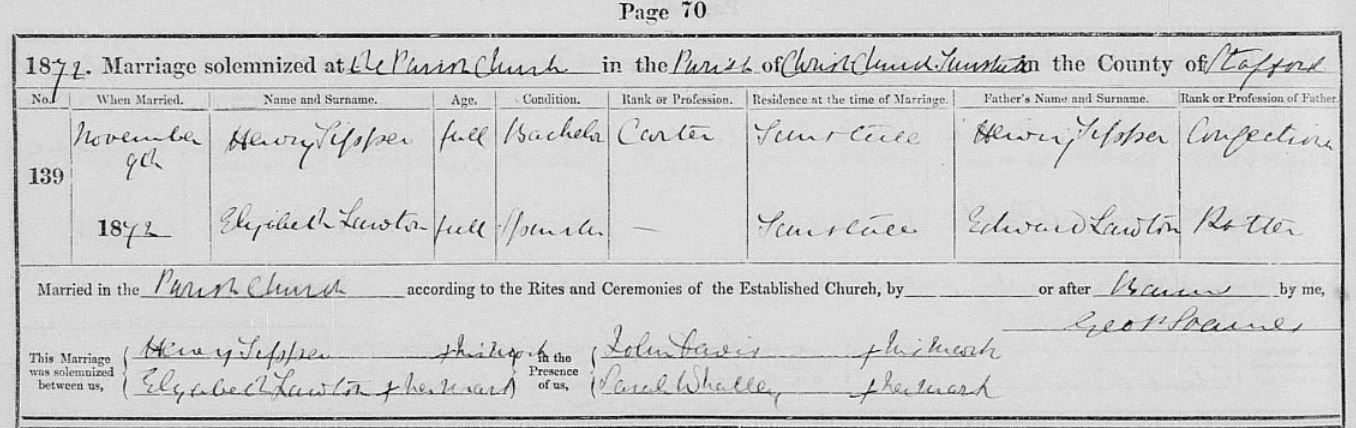 Page 70
1872. Marriage solemnized at the Parish Church in the Parish of Christ Church Tunstall in the County of Stafford
No. When Married. Name and Surname. Age. Condition. Rank or Profession. Residence at the time of Marriage. Father's Name and Surname. Rank or Profession of Father.
139 November 9th Henry full Bachelor Carter Tunstall Henry Confectioner
1872 Elizabeth Lawton full Spinster — Tunstall Edward Lawton Potter
Married in the Parish Church according to the Rites and Ceremonies of the Established Church, by or after Banns by me,
Soames
This Marriage was solemnized between us, Henry + his mark in the Presence of us, John Davis + his mark
Elizabeth Lawton + her mark Sarah Whalley + her mark